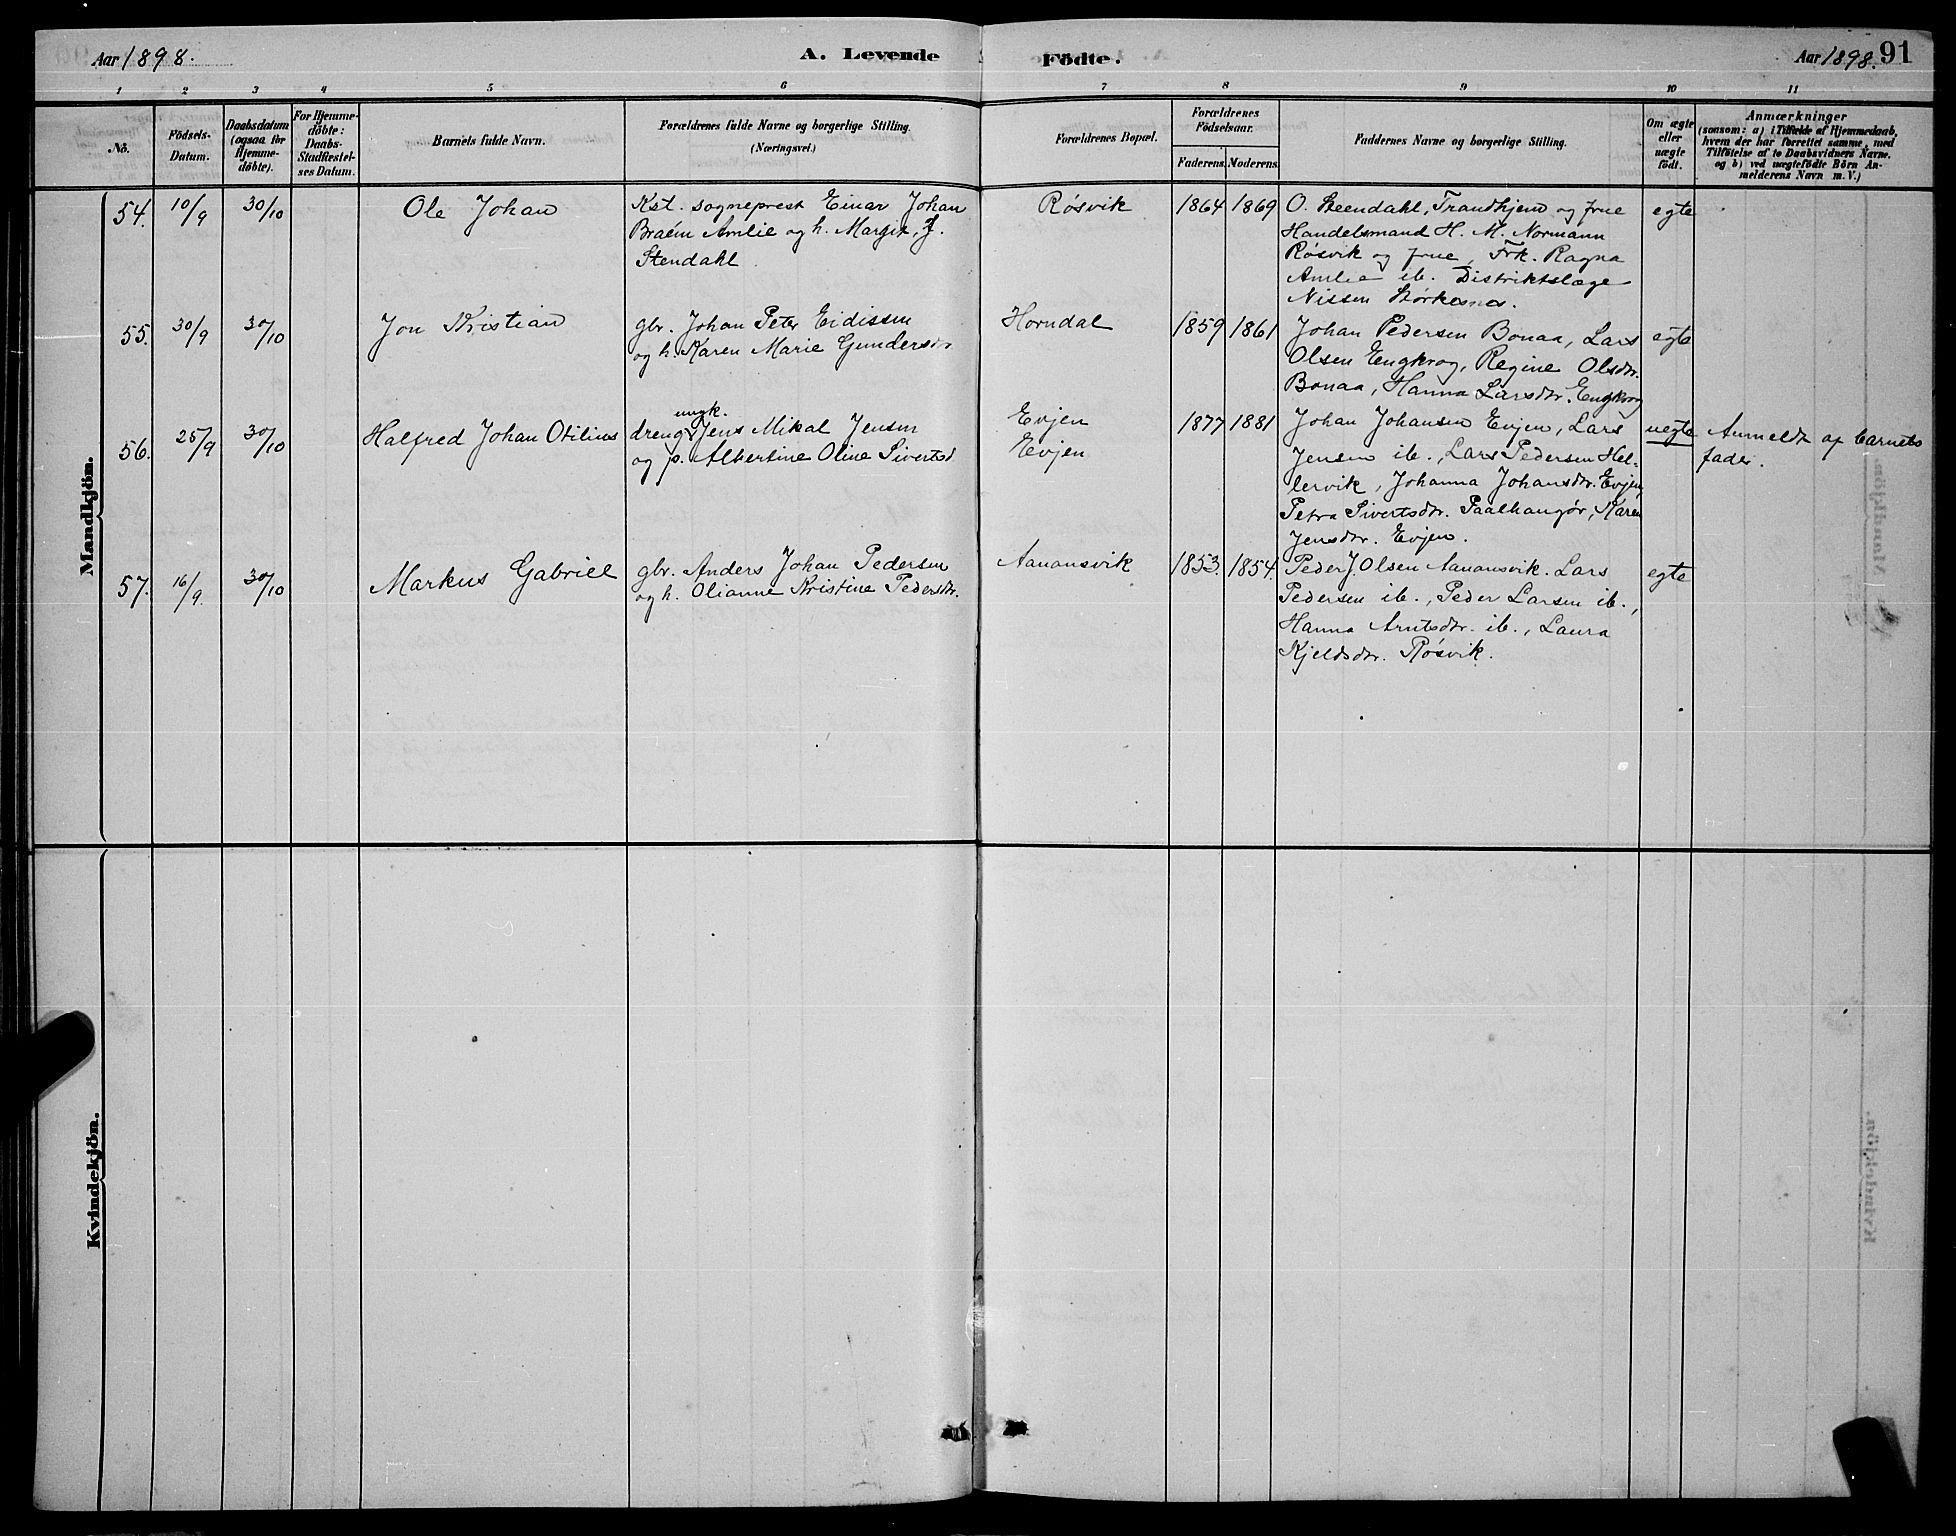 Aar 1898.
A. Levende Födte.
Aar 1898. 91
1 2 3 4 5 6 7 8 9 10 11
No.
Födsels-
Datum.
Daabsdatum
(ogsaa for
Hjemme-
döbte).
For Hjemme-
döbte:
Daabs-
Stadfæstel-
ses Datum.
Barnets fulde Navn.
Forældrenes fulde Navne og borgerlige Stilling.
(Næringsvei.)
Forældrenes Bopæl.
Forældrenes
Födselsaar.
Faderens. Moderens.
Faddernes Navne og borgerlige Stilling.
Om ægte
eller
uægte
födt.
Anmærkninger
(saasom: a) i Tilfælde af Hjemmedaab,
hvem der har forrettet samme, med
Tilföielse af to Daabsvidners Navne,
og b) ved uægtefödte Börn An-
melderens Navn m. V.)
Mandkjön.
54. 10/9 30/10 Ole Johan
Kst. sogneprest Einar Johan
Braém Amlie og h. Margit J.
Stendahl.
Røsvik 1864 1869
O. Steendahl, Trondhjem og frue
Handelsmand H. M. Normann
Røsvik og frue, Frk. Ragna
Amlie ib. Distriktslæge
Nissen Størkesnes.
egte
55. 30/9 30/10 Jon Kristian
gbr. Johan Peter Eidissen
og h. Karen Marie Gundersdr
Horndal 1859 1861
Johan Pedersen Bonaa, Lars
Olsen Engkrog, Regine Olsdtr.
Bonaa, Hanna Larsdtr. Engkrog
egte
56. 25/9 30/10 Halfred Johan Otilius
ungk.
dreng Jens Mikal Jensen
og p. Albertine Oline Sivertsd
Evjen
Evjen
1877 1881
Johan Johansen Evjen, Lars
Jensen ib., Lars Pedersen Hel-
lervik, Johanna Johansdtr. Evjen,
Petra Sivertsdtr. Paalhaugør, Karen
Jensdtr. Evjen.
uegte
Anmeldt af barnets
fader.
57. 16/9. 30/10 Markus Gabriel
gbr. Anders Johan Pedersen
og h. Olianne Kristine Pedersdtr.
Aanansvik 1853. 1854.
Peder J. Olsen Aanansvik. Lars
Pedersen ib., Peder Larsen ib.,
Hanna Arntsdtr. ib., Laura
Kjeldsdtr. Røsvik.
egte
Kvindekjön.